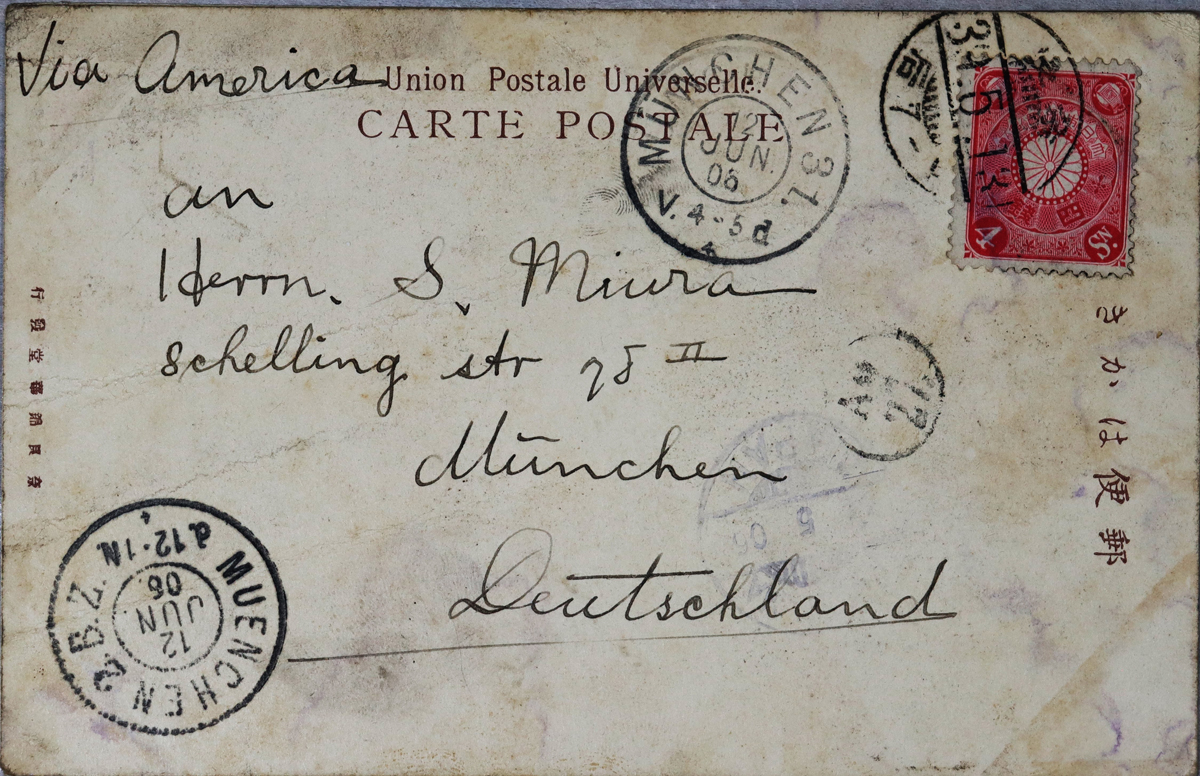 Via America
Union Postale Universelle.
CARTE POSTALE
an
Herrn. S. Miura
Schelling str 78 II
München
Deutschland
MÜNCHEN 31.
12
JUN.
06
V. 4-5 d
MUENCHEN 2 B.Z.
12
JUN
06
d. 12-1N
39.5.13
4 Sn.
四
きかは便郵
行發堂